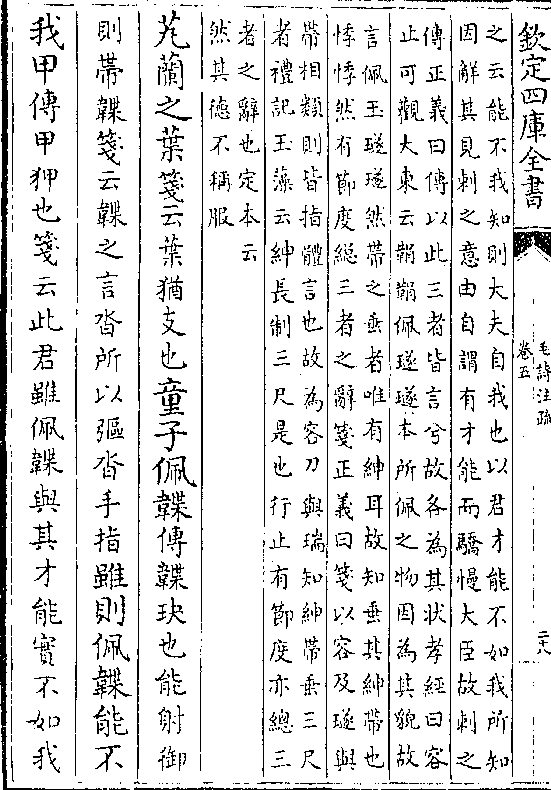 欽定四庫全書
毛詩注疏
卷五
二十八
之云能不我知則大夫自我也以君才能不如我所知
因解其見刺之意由自謂有才能而驕慢大臣故刺之
傳正義曰傳以此三者皆言兮故各為其狀孝經曰容
止可觀大東云鞙鞙佩璲璲本所佩之物因為其貌故
言佩玉璲璲然帶之垂者唯有紳耳故知垂其紳帶也
悸悸然有節度總三者之辭箋正義曰箋以容及璲與
帶相類則皆指體言也故為容刀與瑞知紳帶垂三尺
者禮記玉藻云紳長制三尺是也行止有節度亦總三
者之辭也定本云
然其德不稱服
芄蘭之葉箋云葉猶支也童子佩韘傳韘玦也能射御
則帶韘箋云韘之言沓所以彄沓手指雖則佩韘能不
我甲傳甲狎也箋云此君雖佩韘與其才能實不如我